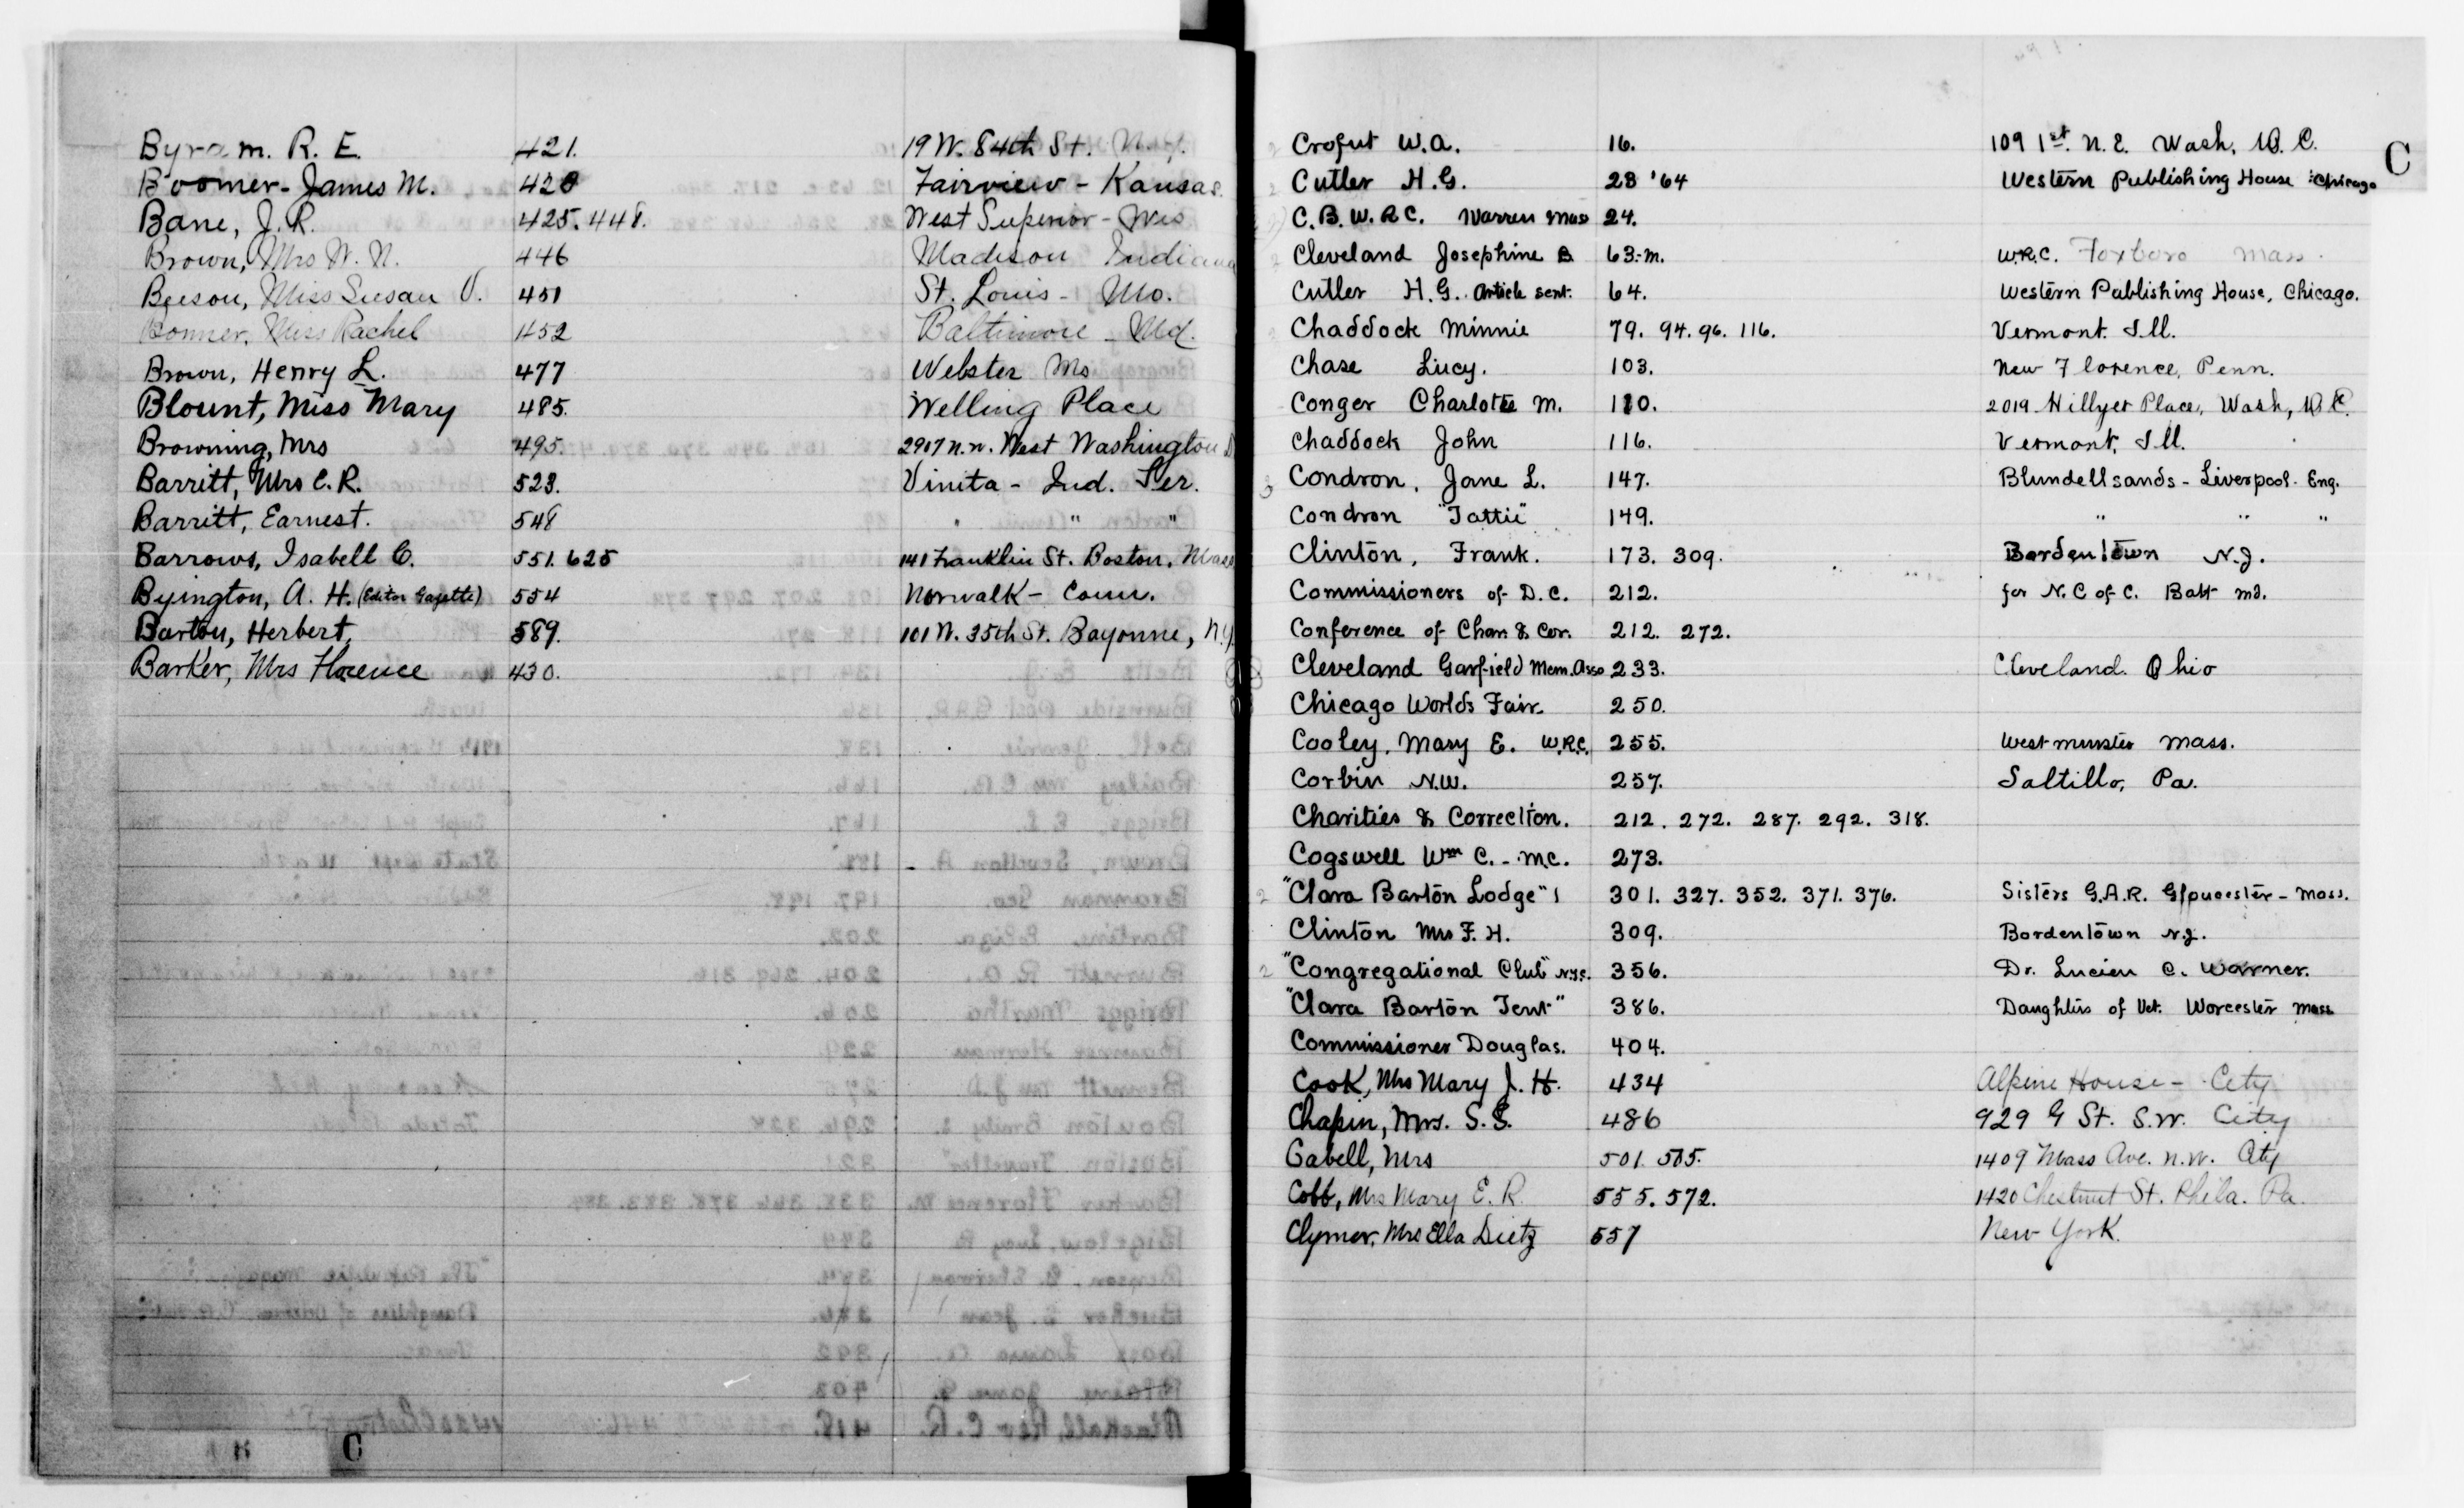 Byram. R. E. 421. 19 W. 84th St. N.Y.
Boomer - James M. 420 Fairview - Kansas.
Bane, J. R. 425. 448. West Superior - Wis
Brown, Mrs W. N. 446 Madison Indiana
Beeson, Miss Susan V. 451 St. Louis - Mo.
Bonner, Miss Rachel 452 Baltimore Md.
Brown, Henry L. 477 Webster Ms
Blount, Miss Mary 485. Welling Place
Browning, Mrs 495. 2907 N.W. West Washington D
Barritt, Mrs C. R. 523. Vinita - Ind. Ter.
Barritt, Earnest. 548 " " "
Barrows, Isabell C. 551. 625 141 Franklin St. Boston. Mass
Byington, A. H. (Editor Gazette) 554 Norwalk - Conn.
Barton, Herbert, 589. 101 W. 35th St. Bayonne, N.J.
Barker, Mrs Florence 430.
C
C
Crofut W. A. 16. 109 1st. N. E. Wash. D. C.
Cutler H. G. 28 '64 Western Publishing House Chicago
C. B. W. R C. Warren Mass 24.
Cleveland Josephine B 63-m. W.R.C. Foxboro Mass.
Cutler H. G. Article sent. 64. Western Publishing House, Chicago.
Chaddock Minnie 79. 94. 96. 116. Vermont. Ill.
Chase Lucy. 103. New Florence, Penn.
Conger Charlotte M. 110. 2019 Hillyer Place, Wash, D. C.
Chaddock John 116. Vermont, Ill.
Condron, Jane L. 147. Blundellsands - Liverpool - Eng.
Condron "Tattie" 149. " " "
Clinton, Frank. 173. 309. Bordentown N.J.
Commissioners of D. C. 212. for N. C of C. Balt Md.
Conference of Char. & Cor. 212. 272.
Cleveland Garfield Mem. Asso 233. Cleveland. Ohio
Chicago Worlds Fair. 250.
Cooley, Mary E. W.R.C. 255. Westminster Mass.
Corbin N.W. 257. Saltillo, Pa.
Charities & Correction. 212. 272. 287. 292. 318.
Cogswell Wm C. - M.C. 273.
2 "Clara Barton Lodge" 1 301. 327. 352. 371. 376. Sisters G.A.R. Gloucester - Mass.
Clinton Mrs F. H. 309. Bordentown N.J.
2 "Congregational Club" N.Y.C. 356. Dr. Lucien C. Warner.
"Clara Barton Tent" 386. Daughters of Vet. Worcester Mass
Commissioner Douglas. 404.
Cook, Mrs Mary J. H. 434 Alpine House - City
Chapin, Mrs. S. S. 486 929 G St. S.W. City
Cabell, Mrs 501. 505. 1409 Mass Ave. N.W. City
Cobb, Mrs Mary E. R. 555. 572. 1420 Chestnut St. Phila. Pa.
Clymer, Mrs Ella Dietz 557 New York.